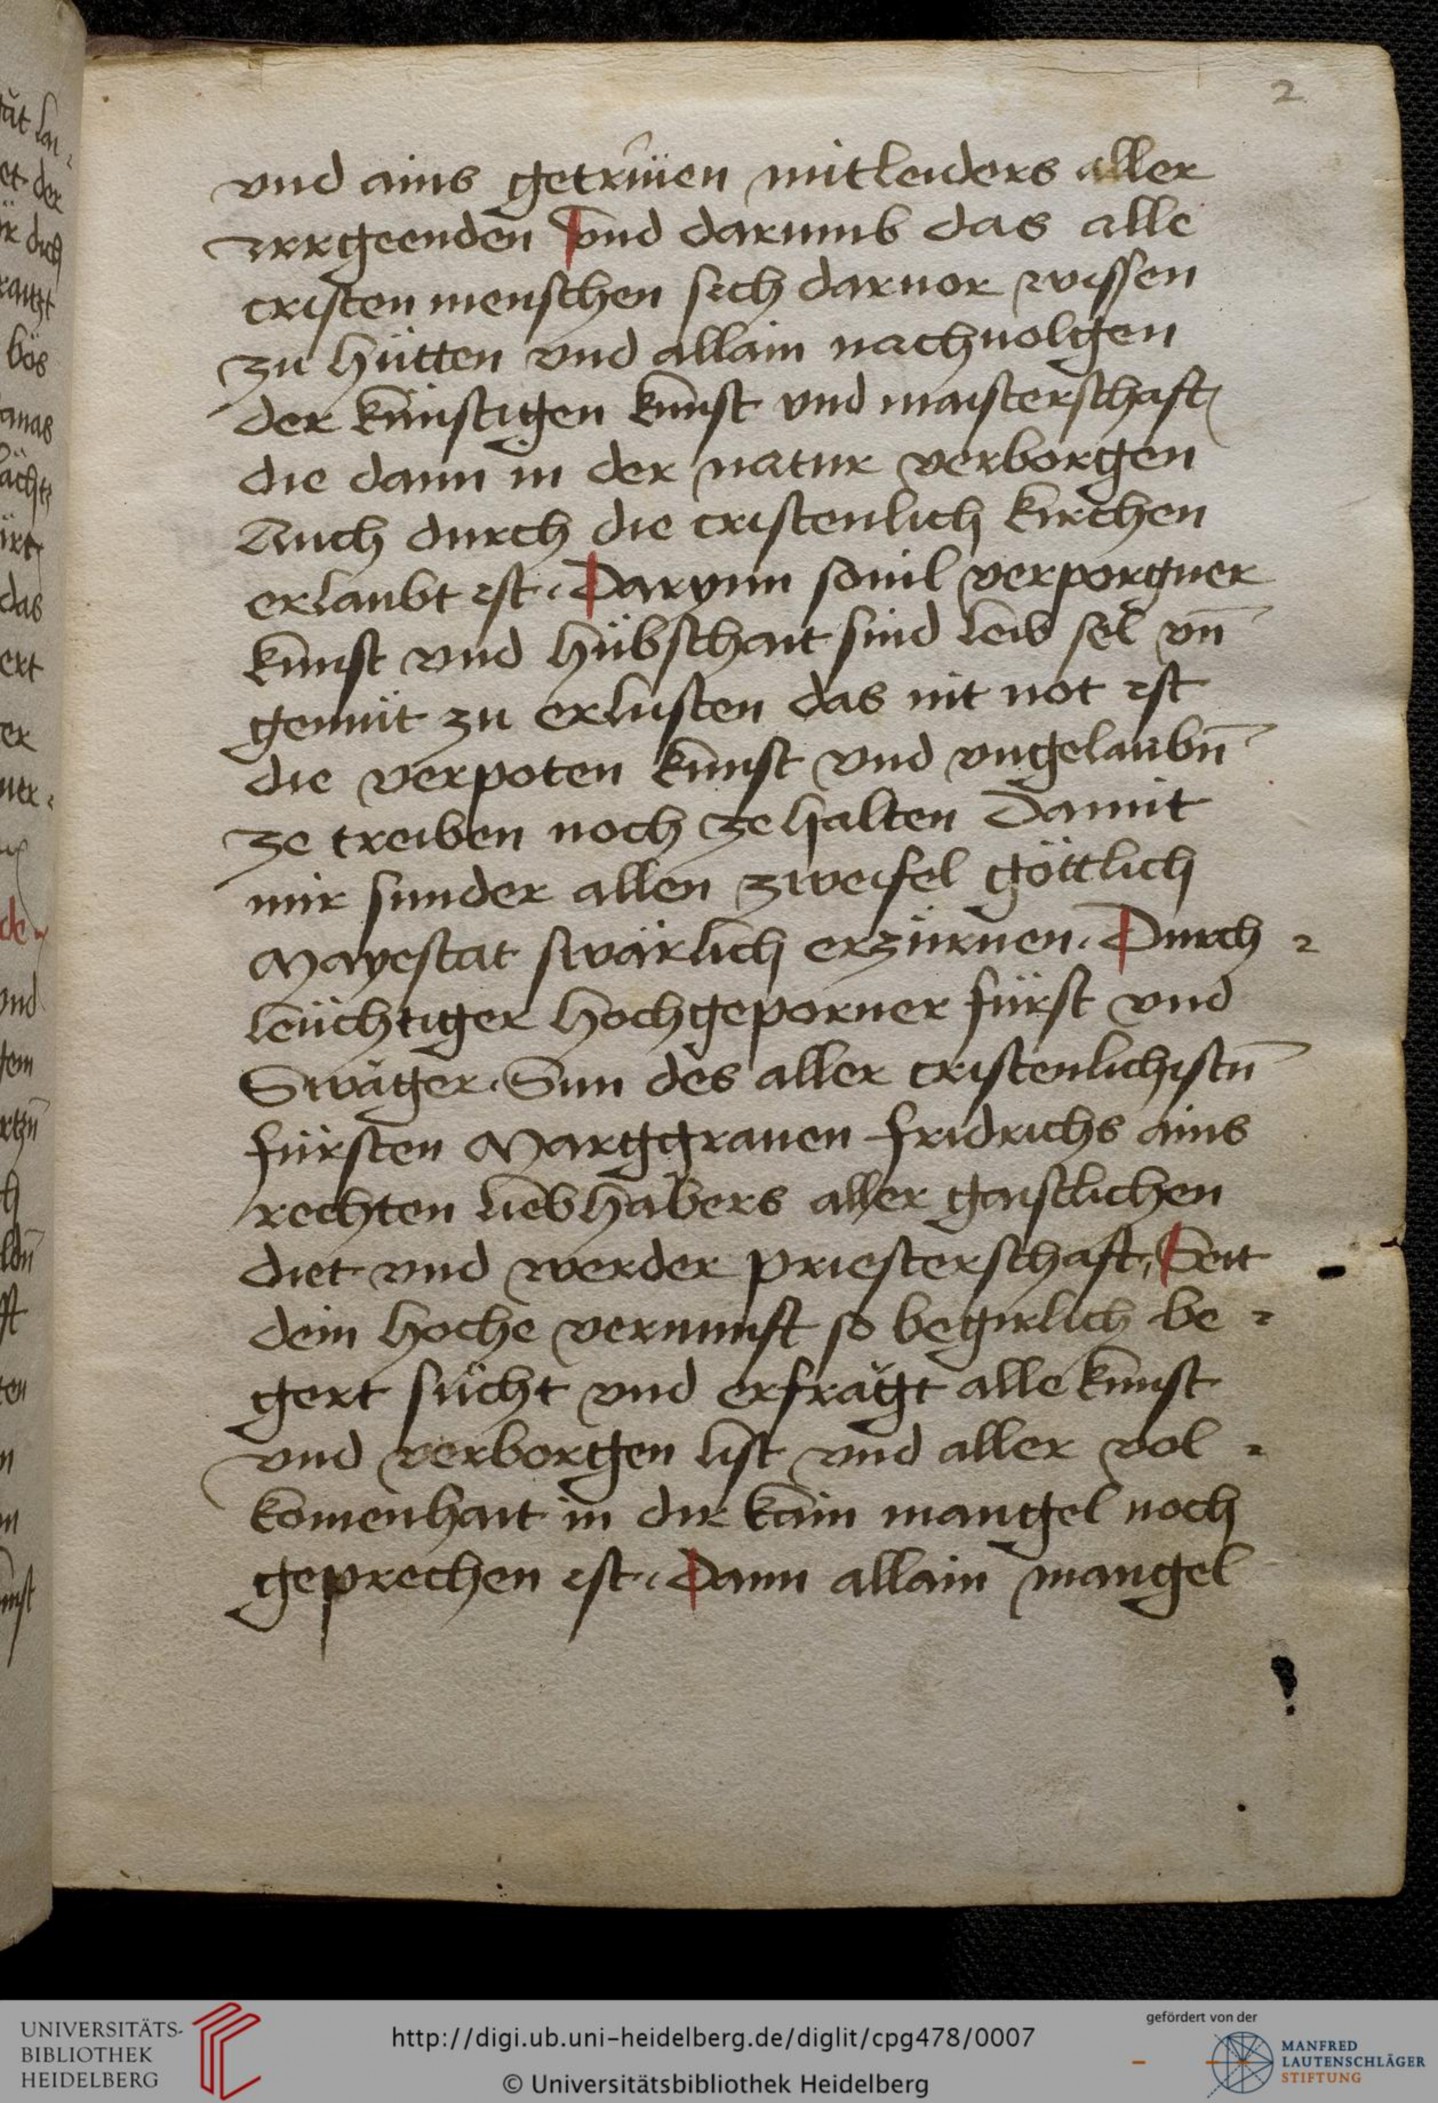 2
vnd ains getrüen mitleiders aller
irrgeenden vnd darumb das alle
cristen menschen sich daruor wissen
zu hütten vnd allain nachuolgen
der künstigen kunst vnd maisterschaft
die dann in der natur verborgen
Auch durch die cristenlich kirchen
erlaubt ist. Darynn souil verporgner
kunst vnd hübschait sind leib sel vn̄
gemüt zu erlusten das nit not ist
die verpoten kunst vnd vngelaubn̄
ze treiben noch ze halten Damit
wir sunder allen zweifel göttlich
Mayestat swärlich erzürnen. Durch
leüchtiger hochgeporner fürst vnd
Swäger. Sun des aller cristenlichistn̄
fürsten Marggrauen fridrichs ains
rechten liebhabers aller gaistlichen
diet vnd werder priesterschaft, Seit
dein hoche vernunft so begirlich be
gert sücht vnd erfrägt alle kunst
vnd verborgen list vnd aller vol
komenhait in dir kain mangel noch
geprechen ist. Dann allain mangel
UNIVERSITÄTS-
BIBLIOTHEK
HEIDELBERG
http://digi.ub.uni-heidelberg.de/diglit/cpg478/0007
© Universitätsbibliothek Heidelberg
gefördert von der
MANFRED
LAUTENSCHLÄGER
STIFTUNG